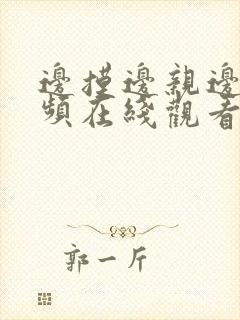 邊摸邊親邊
頻在綫觀看
郭一斤